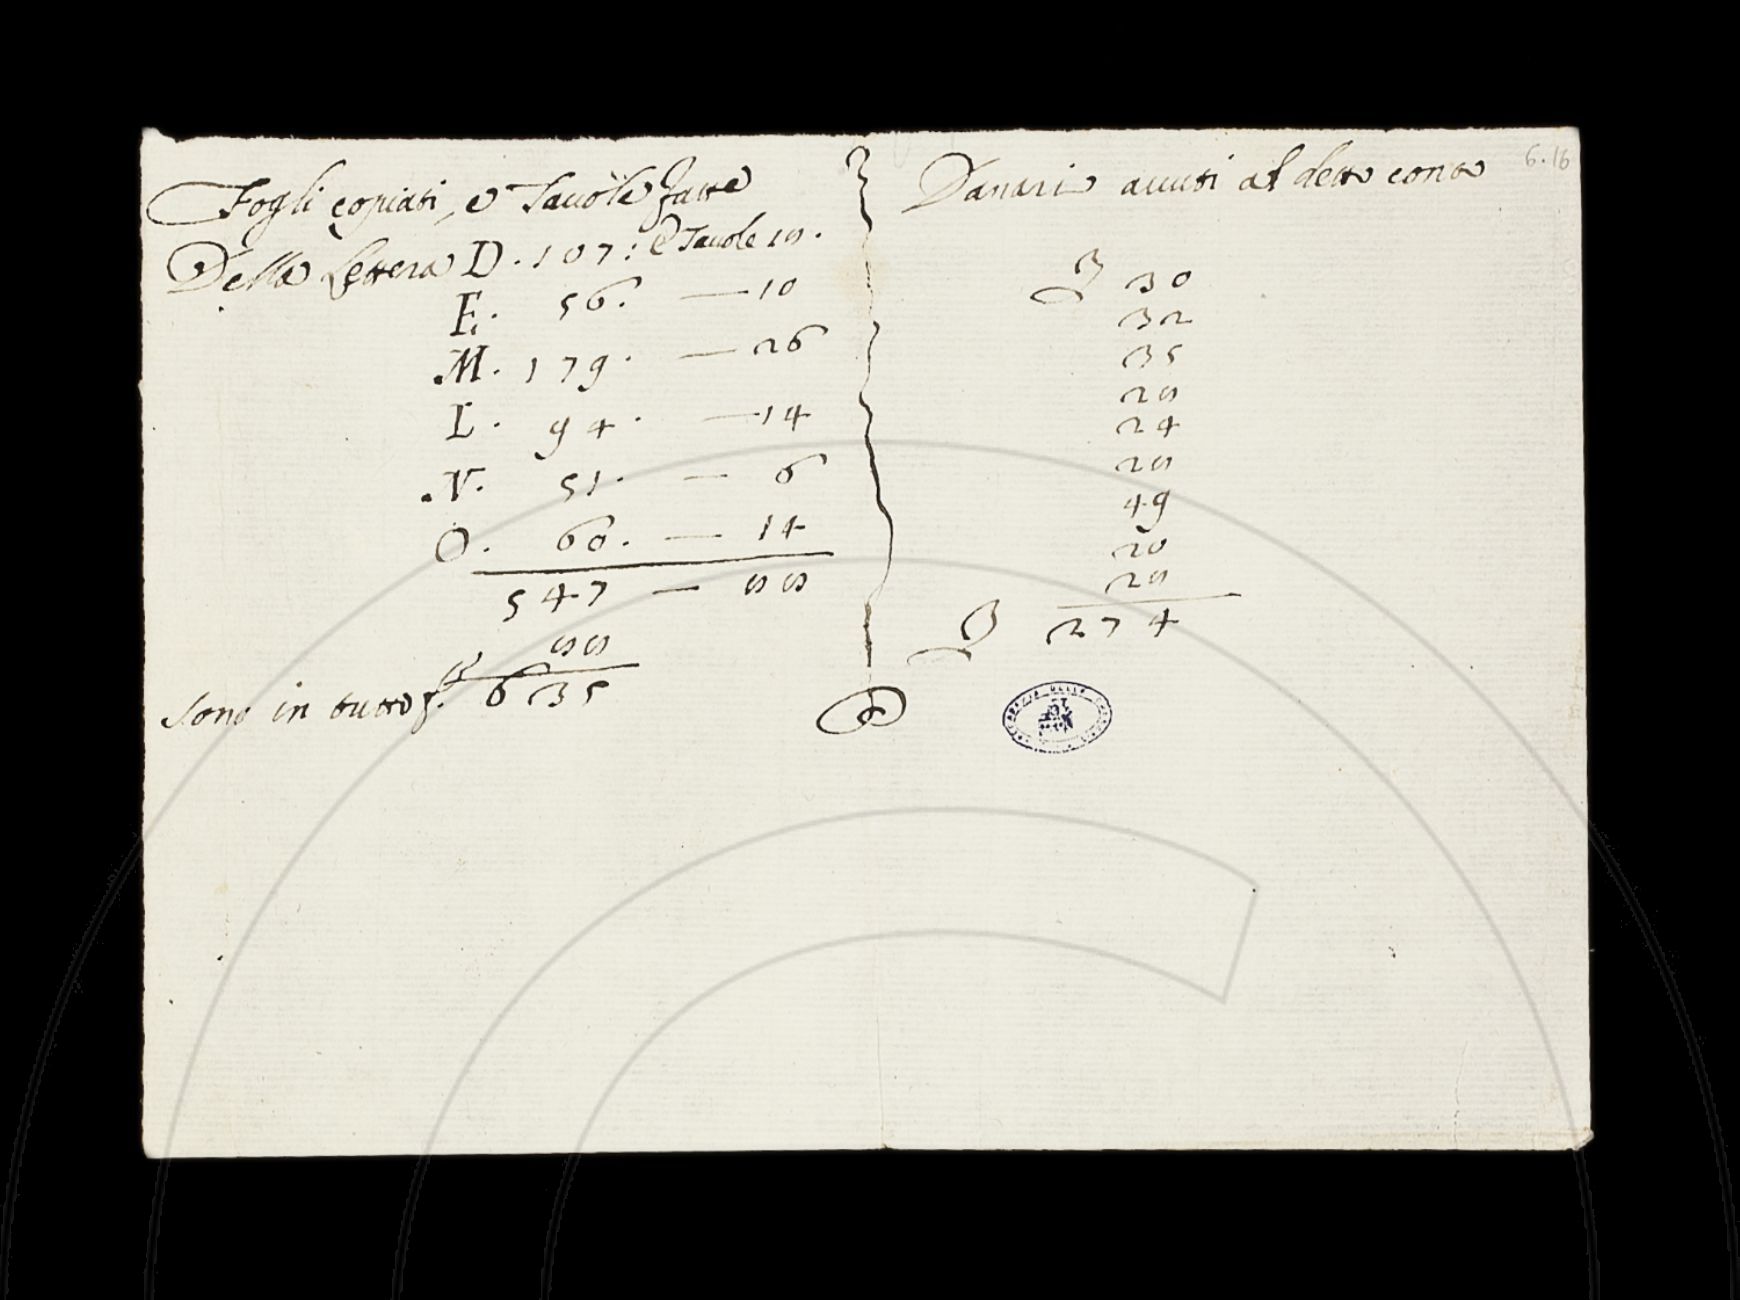 Fogli copiati, e Tauole fatte
Della Lettera D. 107: e Tauole 18.
E. 56. — 10
M. 179. — 26
L. 94. — 14
N. 51. — 6
O. 60. — 14
547 — 88
88
Sono in tutto f. 635
Danari auuti al detto conto
6.16
30
32
35
28
24
28
49
20
28
274